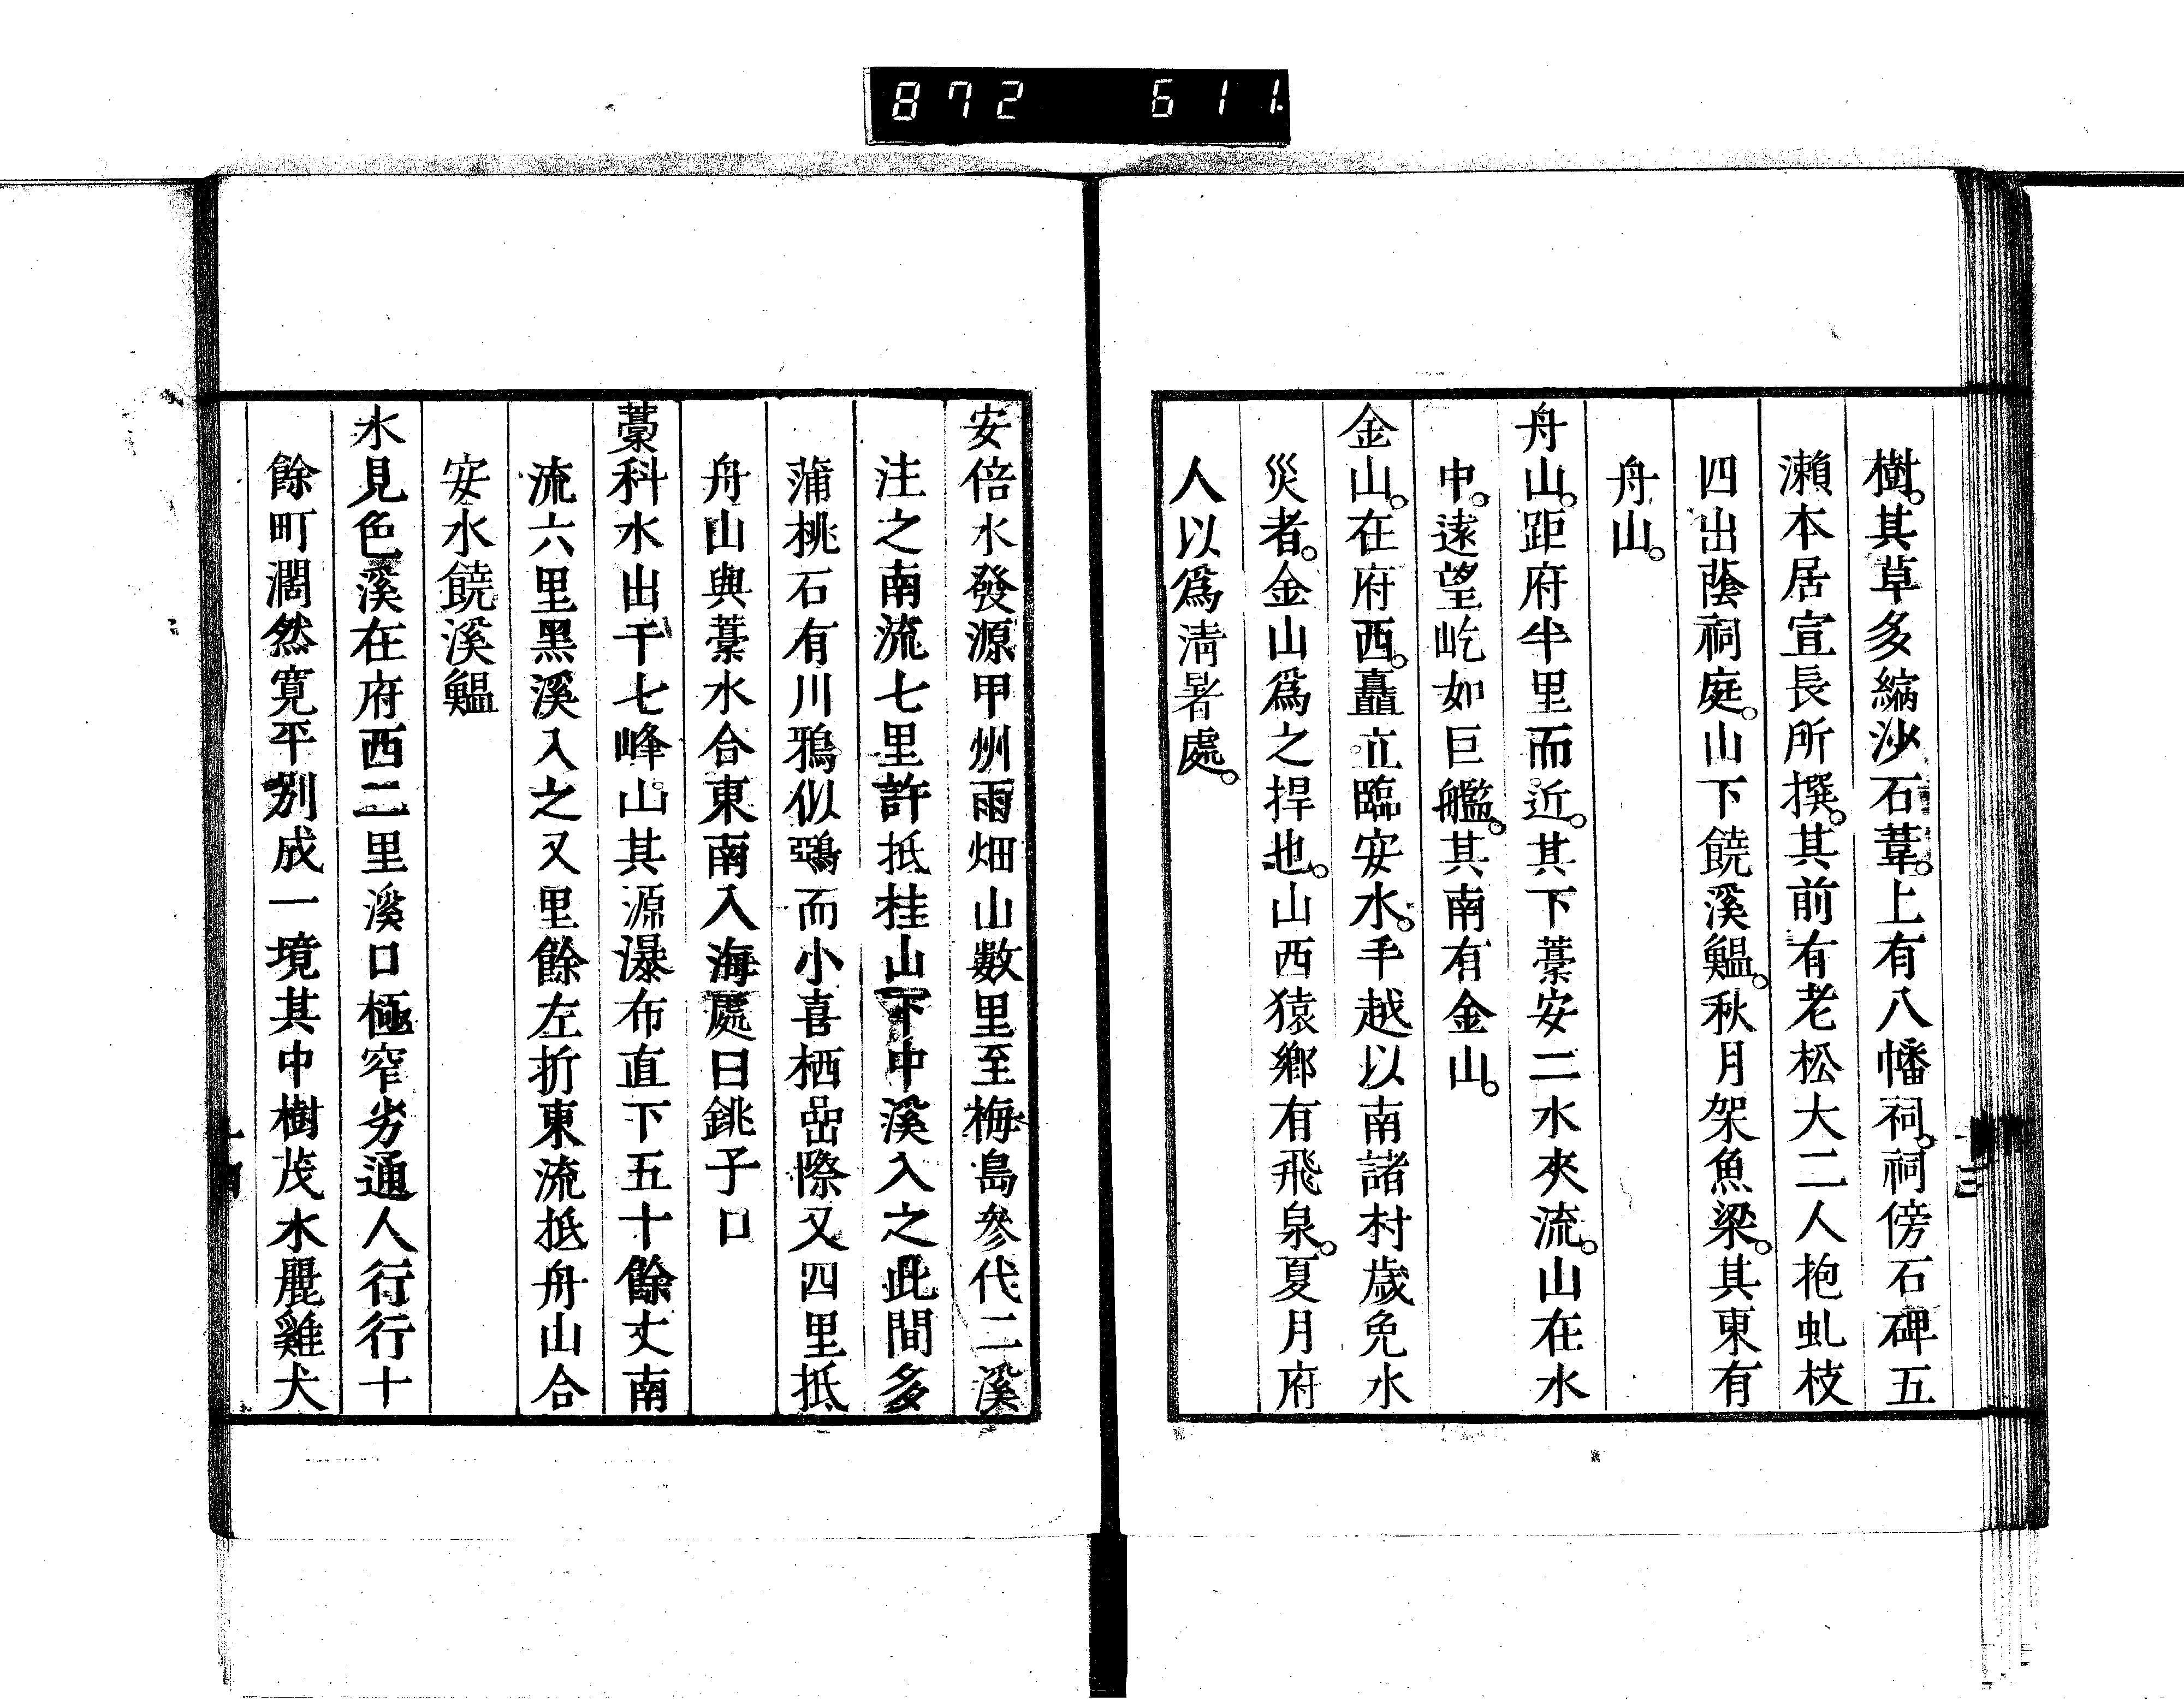 872 611
樹。其草多縮沙石葦。上有八幡祠。祠傍石碑五
瀨本居宣長所撰。其前有老松大二人抱虬枝
四出蔭祠庭。山下饒溪鰛。秋月架魚梁。其東有
舟山。
舟山。距府半里而近。其下藁安二水夾流。山在水
中。遠望屹如巨艦。其南有金山。
金山。在府西。矗立臨安水。手越以南諸村歲免水
災者。金山爲之捍也。山西猿鄉有飛泉。夏月府
人以爲淸暑處。
安倍水發源甲州雨畑山數里至梅島參代二溪
注之南流七里許抵桂山下中溪入之此間多
蒲桃石有川鴉似鵶而小喜栖嵒際又四里抵
舟山與藁水合東南入海處曰銚子口
藁科水出千七峰山其源瀑布直下五十餘丈南
流六里黑溪入之又里餘左折東流抵舟山合
安水饒溪鰛
水見色溪在府西二里溪口極窄劣通人行行十
餘町濶然寬平別成一境其中樹茂水麗雞犬